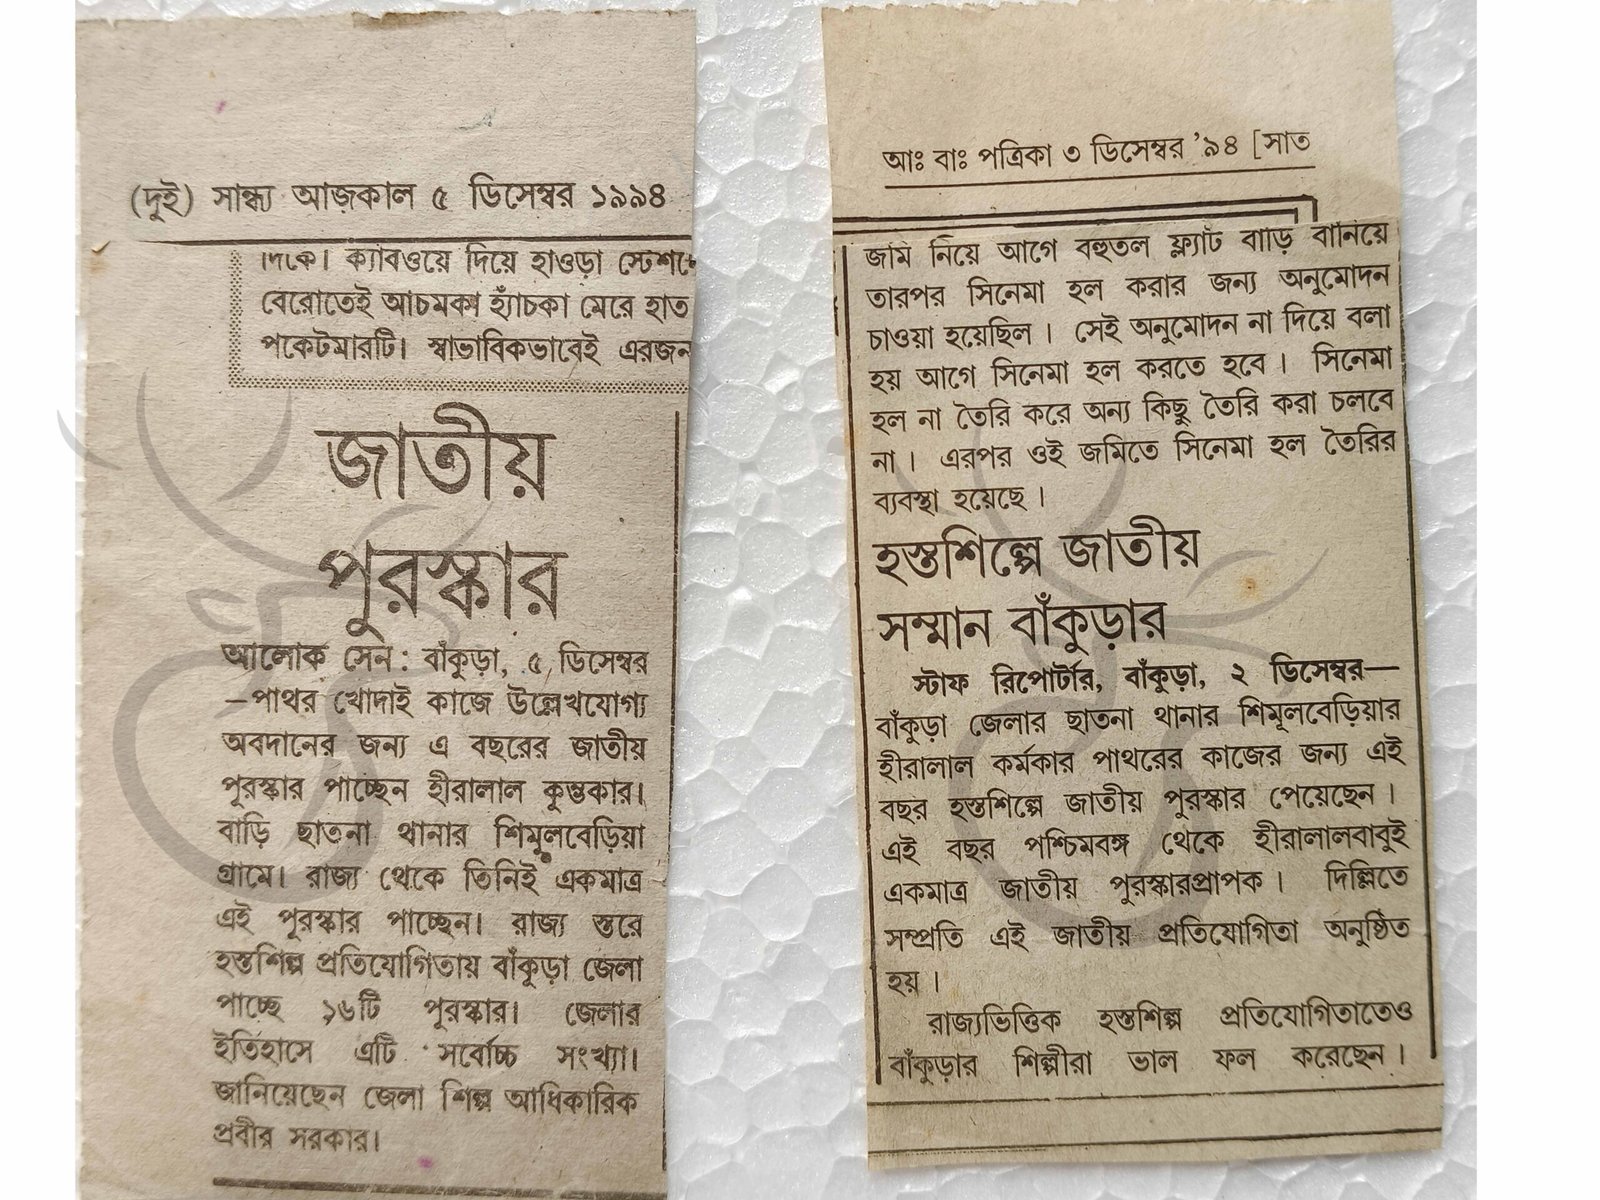 (দুই) সান্ধ্য আজকাল ৫ ডিসেম্বর ১৯৯৪
দিকে। ক্যাবওয়ে দিয়ে হাওড়া স্টেশনে
বেরোতেই আচমকা হ্যাঁচকা মেরে হাত
পকেটমারটি। স্বাভাবিকভাবেই এরজন
জাতীয়
পুরস্কার
আলোক সেন: বাঁকুড়া, ৫ ডিসেম্বর
—পাথর খোদাই কাজে উল্লেখযোগ্য
অবদানের জন্য এ বছরের জাতীয়
পুরস্কার পাচ্ছেন হীরালাল কুম্ভকার।
বাড়ি ছাতনা থানার শিমুলবেড়িয়া
গ্রামে। রাজ্য থেকে তিনিই একমাত্র
এই পুরস্কার পাচ্ছেন। রাজ্য স্তরে
হস্তশিল্প প্রতিযোগিতায় বাঁকুড়া জেলা
পাচ্ছে ১৬টি পুরস্কার। জেলার
ইতিহাসে এটি সর্বোচ্চ সংখ্যা।
জানিয়েছেন জেলা শিল্প আধিকারিক
প্রবীর সরকার।
আঃ বাঃ পত্রিকা ৩ ডিসেম্বর '৯৪ [সাত
জমি নিয়ে আগে বহুতল ফ্ল্যাট বাড়ি বানিয়ে
তারপর সিনেমা হল করার জন্য অনুমোদন
চাওয়া হয়েছিল। সেই অনুমোদন না দিয়ে বলা
হয় আগে সিনেমা হল করতে হবে। সিনেমা
হল না তৈরি করে অন্য কিছু তৈরি করা চলবে
না। এরপর ওই জমিতে সিনেমা হল তৈরির
ব্যবস্থা হয়েছে।
হস্তশিল্পে জাতীয়
সম্মান বাঁকুড়ার
স্টাফ রিপোর্টার, বাঁকুড়া, ২ ডিসেম্বর—
বাঁকুড়া জেলার ছাতনা থানার শিমূলবেড়িয়ার
হীরালাল কর্মকার পাথরের কাজের জন্য এই
বছর হস্তশিল্পে জাতীয় পুরস্কার পেয়েছেন।
এই বছর পশ্চিমবঙ্গ থেকে হীরালালবাবুই
একমাত্র জাতীয় পুরস্কারপ্রাপক। দিল্লিতে
সম্প্রতি এই জাতীয় প্রতিযোগিতা অনুষ্ঠিত
হয়।
রাজ্যভিত্তিক হস্তশিল্প প্রতিযোগিতাতেও
বাঁকুড়ার শিল্পীরা ভাল ফল করেছেন।